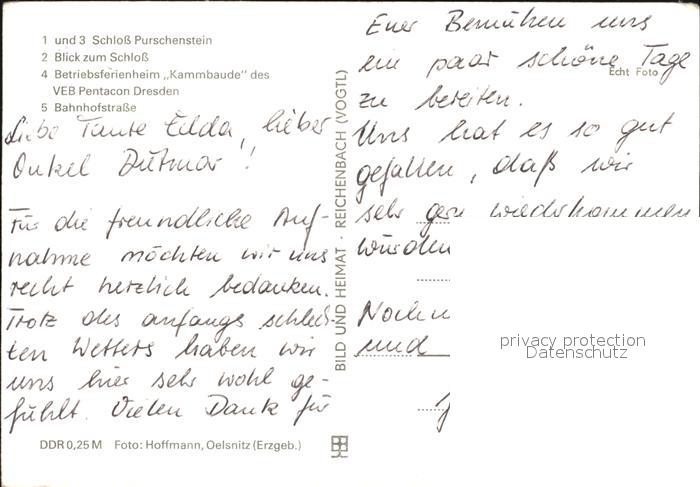 1 und 3 Schloß Purschenstein
2 Blick zum Schloß
4 Betriebsferienheim „Kammbaude" des
VEB Pentacon Dresden
5 Bahnhofstraße
Liebe Tante Edda, lieber
Onkel Dietmar!
Für die freundliche Auf-
nahme möchten wir uns
recht herzlich bedanken.
Trotz des anfangs schlech-
ten Wetters haben wir
uns hier sehr wohl ge-
fühlt. Vielen Dank für
DDR 0,25 M Foto: Hoffmann, Oelsnitz (Erzgeb.)
BILD UND HEIMAT · REICHENBACH (VOGTL)
Euer Bemühen uns
ein paar schöne Tage
Echt Foto
zu bereiten.
Uns hat es so gut
gefallen, daß wir
sehr gern wiederkommen
würden
Noch
und
privacy protection
Datenschutz